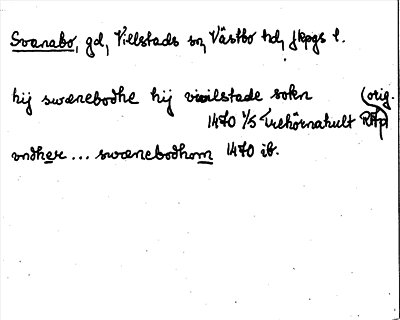 Svanabo, gd, Villstads sn, Västbo hd, Jkpgs l.
hij swænebodhe hij wiilstade sokn (orig.
1470 1/5 Trehörnahult RAp)
vndher ... swænebodhom 1470 ib.